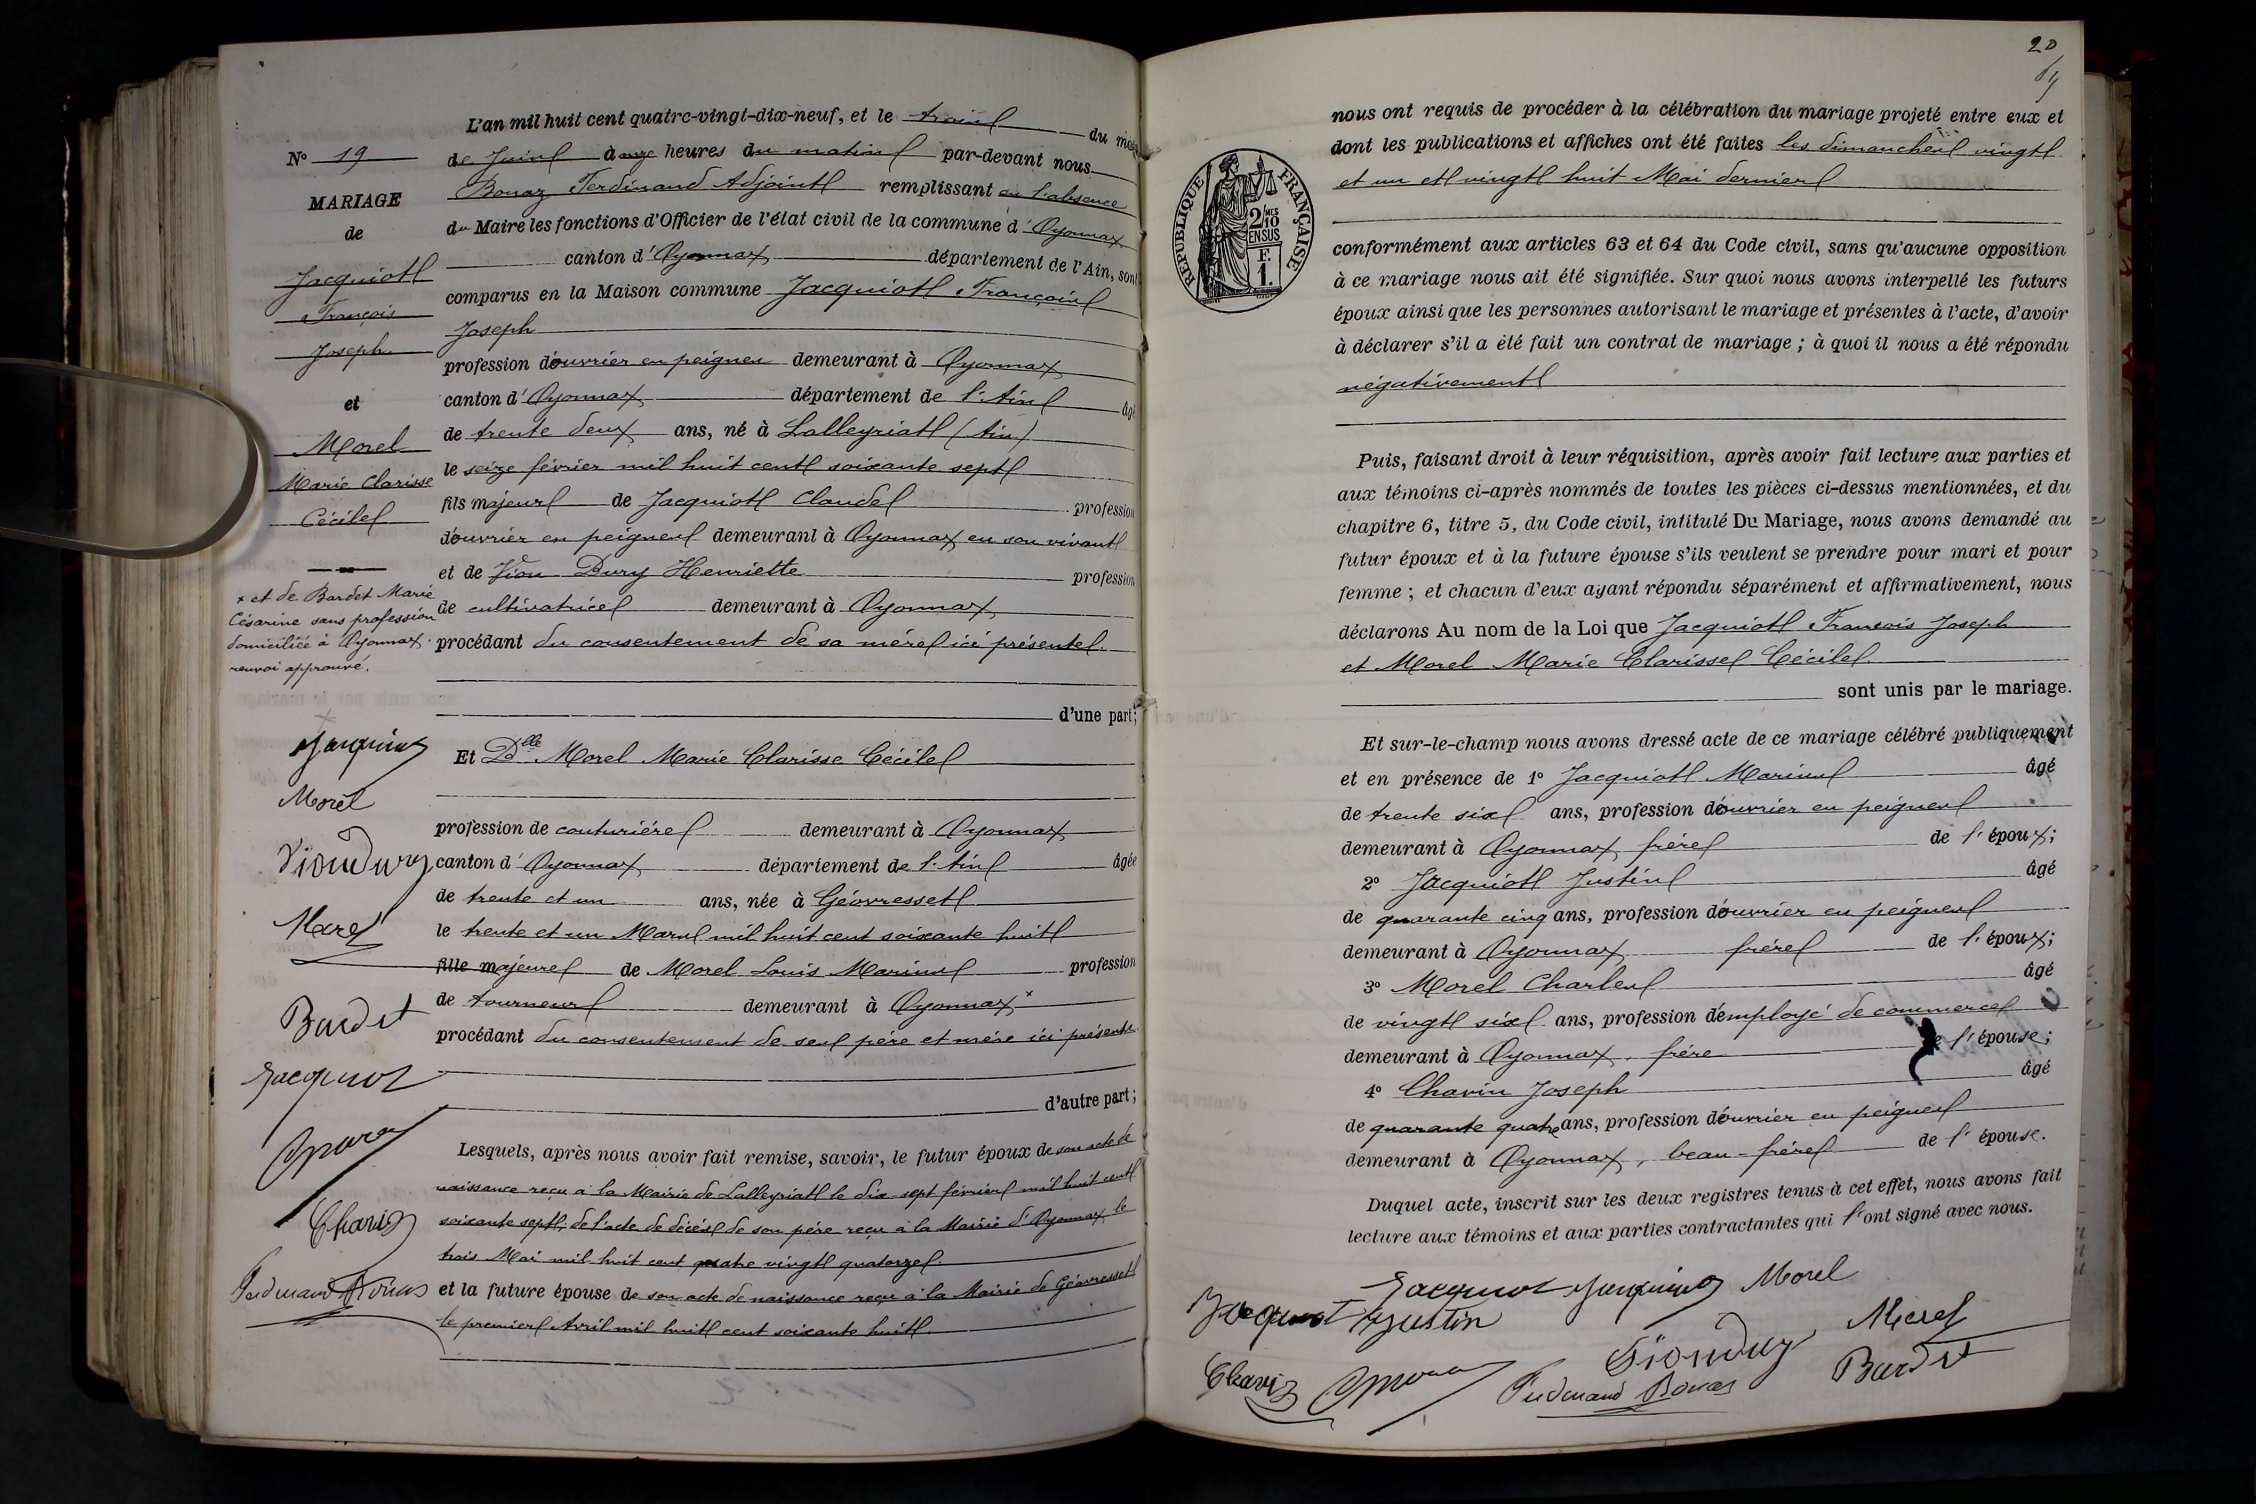 N° 19
MARIAGE
de
Jacquiot
François
Joseph
et
Morel
Marie Clarisse
Cécile
x et de Bardet Marie
Césarine sans profession
domiciliée à Oyonnax.
renvoi approuvé.
Morel
Viondury
Morel
Bardet
Jacquiot
Chavin
Ferdinand Bonaz
L'an mil huit cent quatre-vingt-dix-neuf, et le trois du mois
de Juin à onze heures du matin par-devant nous
Bonaz Ferdinand Adjoint remplissant en l'absence
du Maire les fonctions d'Officier de l'état civil de la commune d'Oyonnax
canton d'Oyonnax département de l'Ain, sont
comparus en la Maison commune Jacquiot François
Joseph
profession d'ouvrier en peignes demeurant à Oyonnax
canton d'Oyonnax département de l'Ain âgé
de trente deux ans, né à Lalleyriat (Ain)
le seize février mil huit cent soixante sept
fils majeur de Jacquiot Claude profession
d'ouvrier en peignes demeurant à Oyonnax en son vivant
et de Vion Dury Henriette profession
de cultivatrice demeurant à Oyonnax
procédant du consentement de sa mère ici présente.
d'une part;
Et Dlle Morel Marie Clarisse Cécile
profession de couturière demeurant à Oyonnax
canton d'Oyonnax département de l'Ain âgée
de trente et un ans, née à Géovresset
le trente et un Mars mil huit cent soixante huit
fille majeure de Morel Louis Marius profession
de tourneur demeurant à Oyonnax x
procédant du consentement de ses père et mère ici présents
d'autre part;
Lesquels, après nous avoir fait remise, savoir, le futur époux de son acte de
naissance reçu à la Mairie de Lalleyriat le dix sept février mil huit cent
soixante sept; de l'acte de décès de son père reçu à la Mairie d'Oyonnax le
trois Mai mil huit cent quatre vingt quatorze.
et la future épouse de son acte de naissance reçu à la Mairie de Géovresset
le premier Avril mil huit cent soixante huit.
20
RÉPUBLIQUE FRANÇAISE
2/10 MES
EN SUS
F.
1.
nous ont requis de procéder à la célébration du mariage projeté entre eux et
dont les publications et affiches ont été faites les dimanches vingt
et un et vingt huit Mai dernier
conformément aux articles 63 et 64 du Code civil, sans qu'aucune opposition
à ce mariage nous ait été signifiée. Sur quoi nous avons interpellé les futurs
époux ainsi que les personnes autorisant le mariage et présentes à l'acte, d'avoir
à déclarer s'il a été fait un contrat de mariage; à quoi il nous a été répondu
négativement
Puis, faisant droit à leur réquisition, après avoir fait lecture aux parties et
aux témoins ci-après nommés de toutes les pièces ci-dessus mentionnées, et du
chapitre 6, titre 5, du Code civil, intitulé Du Mariage, nous avons demandé au
futur époux et à la future épouse s'ils veulent se prendre pour mari et pour
femme; et chacun d'eux ayant répondu séparément et affirmativement, nous
déclarons Au nom de la Loi que Jacquiot François Joseph
et Morel Marie Clarisse Cécile
sont unis par le mariage.
Et sur-le-champ nous avons dressé acte de ce mariage célébré publiquement
et en présence de 1° Jacquiot Marius âgé
de trente six ans, profession d'ouvrier en peignes
demeurant à Oyonnax, frère de l'époux;
2° Jacquiot Justin âgé
de quarante cinq ans, profession d'ouvrier en peignes
demeurant à Oyonnax frère de l'époux;
3° Morel Charles âgé
de vingt six ans, profession d'employé de commerce
demeurant à Oyonnax, frère de l'épouse;
4° Chavin Joseph âgé
de quarante quatre ans, profession d'ouvrier en peignes
demeurant à Oyonnax, beau-frère de l'épouse.
Duquel acte, inscrit sur les deux registres tenus à cet effet, nous avons fait
lecture aux témoins et aux parties contractantes qui l'ont signé avec nous.
Jacquiot Morel
Jacquiot Justin Morel
Viondury
Chavin Bardet
Ferdinand Bonaz